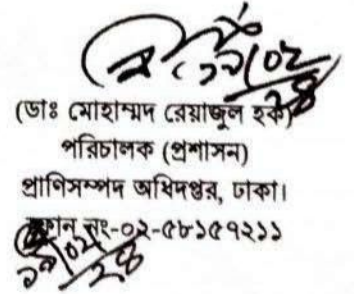 ১৯/০২/২৪
(ডাঃ মোহাম্মদ রেয়াজুল হক)
পরিচালক (প্রশাসন)
প্রাণিসম্পদ অধিদপ্তর, ঢাকা।
ফোন নং-০২-৫৮১৫৭২১১
১৯/০২/২৪